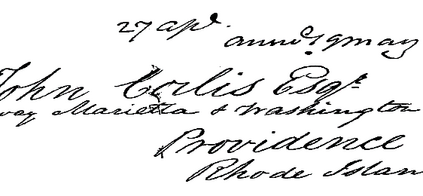 27 apl.
ann'd 19 may
John Corlis Esqr.
way Marietta & Washington
Providence
Rhode Islan